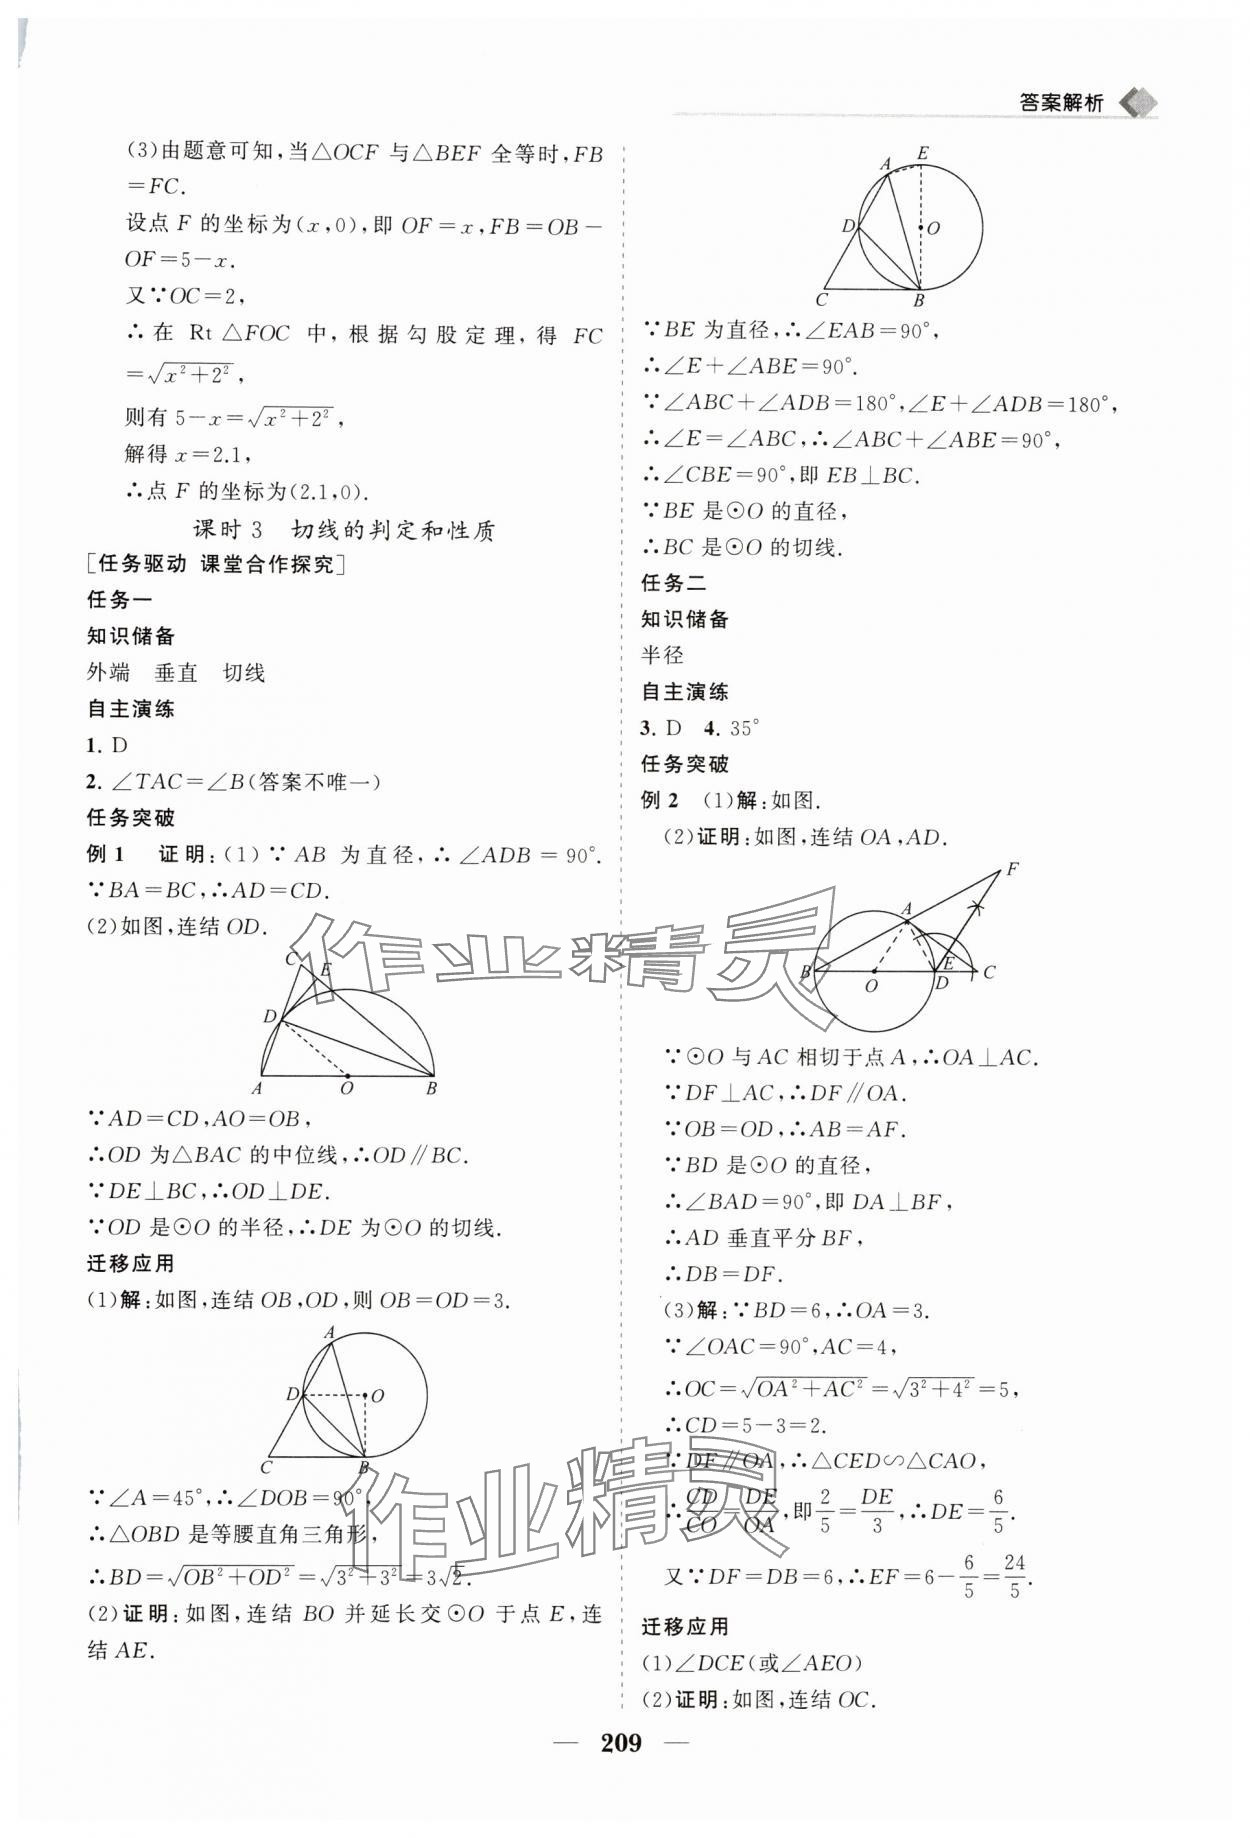 答案解析
(3)由题意可知,当△OCF 与△BEF 全等时,FB
=FC.
设点 F 的坐标为(x,0),即 OF=x,FB=OB-
OF=5-x.
又∵OC=2,
∴在 Rt △FOC 中,根据勾股定理,得 FC
=√(x²+2²),
则有 5-x=√(x²+2²),
解得 x=2.1,
∴点 F 的坐标为(2.1,0).
课时 3 切线的判定和性质
[任务驱动 课堂合作探究]
任务一
知识储备
外端 垂直 切线
自主演练
1. D
2. ∠TAC=∠B(答案不唯一)
任务突破
例 1 证明:(1)∵AB 为直径,∴∠ADB=90°.
∵BA=BC,∴AD=CD.
(2)如图,连结 OD.
C E
D
A O B
∵AD=CD,AO=OB,
∴OD 为△BAC 的中位线,∴OD∥BC.
∵DE⊥BC,∴OD⊥DE.
∵OD 是⊙O 的半径,∴DE 为⊙O 的切线.
迁移应用
(1)解:如图,连结 OB,OD,则 OB=OD=3.
A
D O
C B
∵∠A=45°,∴∠DOB=90°,
∴△OBD 是等腰直角三角形,
∴BD=√(OB²+OD²)=√(3²+3²)=3√2.
(2)证明:如图,连结 BO 并延长交⊙O 于点 E,连
结 AE.
A E
D O
C B
∵BE 为直径,∴∠EAB=90°,
∴∠E+∠ABE=90°.
∵∠ABC+∠ADB=180°,∠E+∠ADB=180°,
∴∠E=∠ABC,∴∠ABC+∠ABE=90°,
∴∠CBE=90°,即 EB⊥BC.
∵BE 是⊙O 的直径,
∴BC 是⊙O 的切线.
任务二
知识储备
半径
自主演练
3. D 4. 35°
任务突破
例 2 (1)解:如图.
(2)证明:如图,连结 OA,AD.
F
A
B O D E C
∵⊙O 与 AC 相切于点 A,∴OA⊥AC.
∵DF⊥AC,∴DF∥OA.
∵OB=OD,∴AB=AF.
∵BD 是⊙O 的直径,
∴∠BAD=90°,即 DA⊥BF,
∴AD 垂直平分 BF,
∴DB=DF.
(3)解:∵BD=6,∴OA=3.
∵∠OAC=90°,AC=4,
∴OC=√(OA²+AC²)=√(3²+4²)=5,
∴CD=5-3=2.
∵DF∥OA,∴△CED∽△CAO,
∴CD/CO=DE/OA,即 2/5=DE/3,∴DE=6/5.
又∵DF=DB=6,∴EF=6-6/5=24/5.
迁移应用
(1)∠DCE(或∠AEO)
(2)证明:如图,连结 OC.
作业精灵
作业精灵
— 209 —